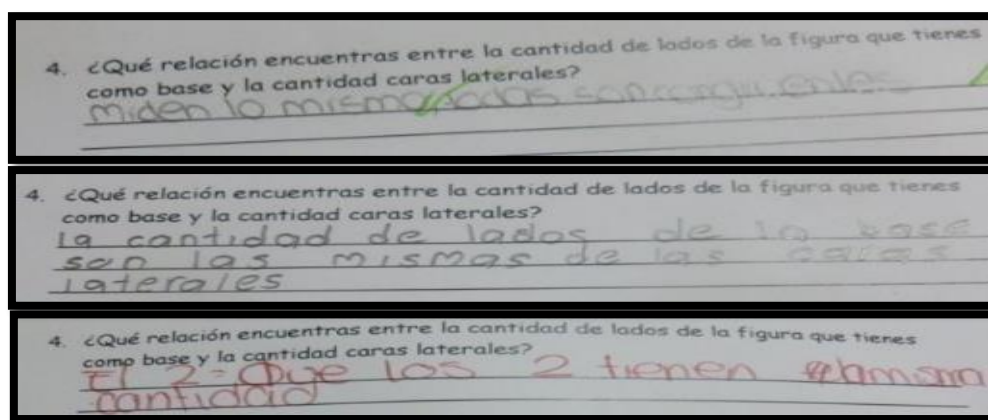 4. ¿Qué relación encuentras entre la cantidad de lados de la figura que tienes
como base y la cantidad caras laterales?
miden lo mismo todas son
4. ¿Qué relación encuentras entre la cantidad de lados de la figura que tienes
como base y la cantidad caras laterales?
la cantidad de lados de la base
son las mismas de las caras
laterales
4. ¿Qué relación encuentras entre la cantidad de lados de la figura que tienes
como base y la cantidad caras laterales?
El 2- Que los 2 tienen
cantidad